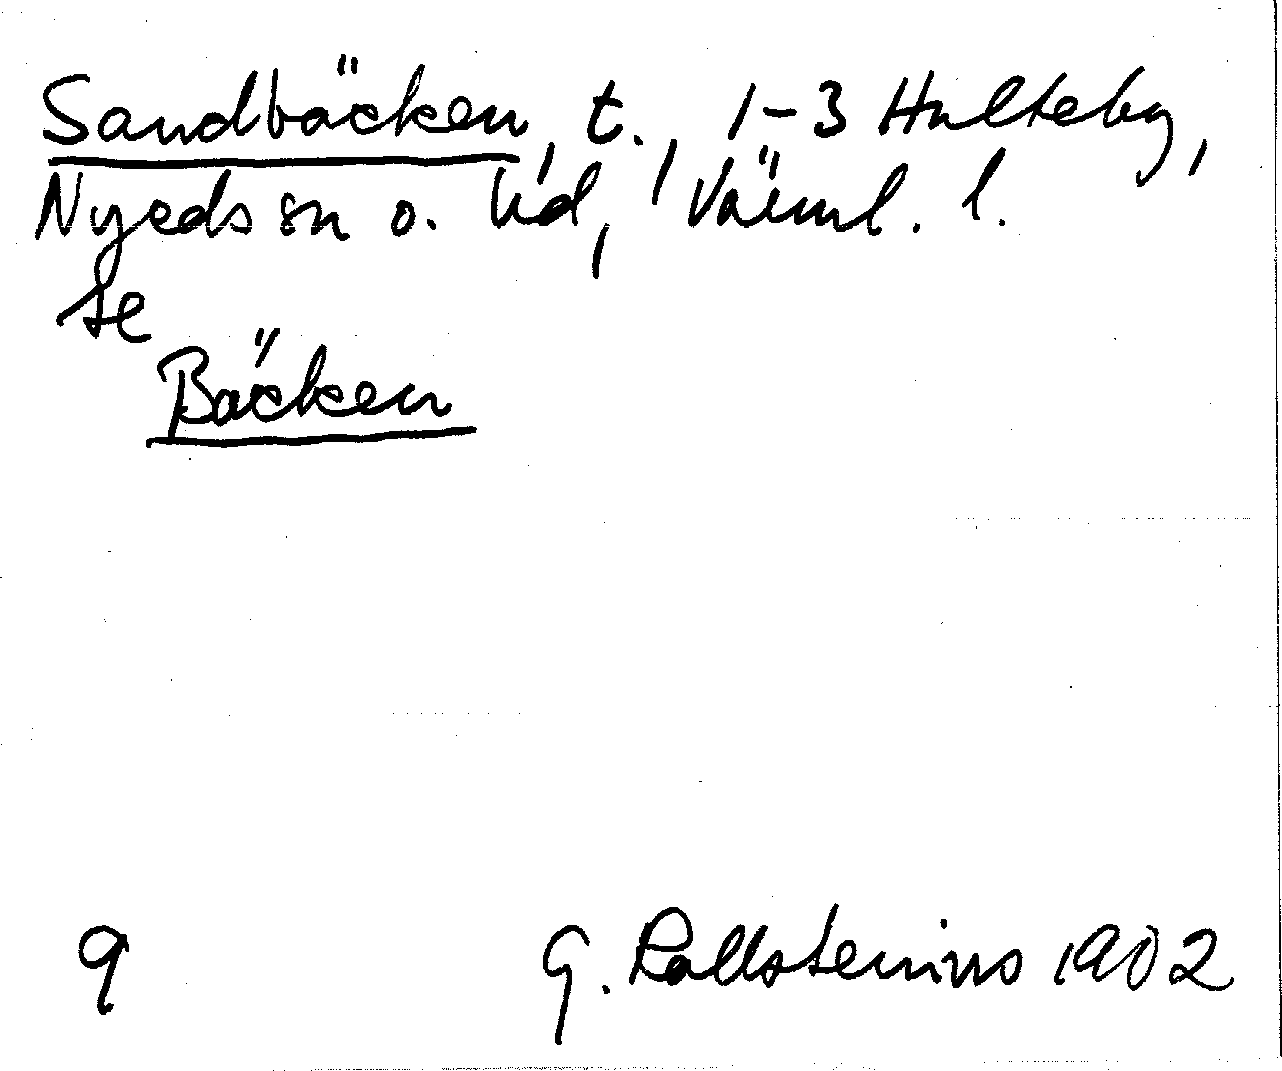 Sandbäcken, t., 1-3 Hulteby,
Nyeds sn o. hd, Värml. l.
se
Bäcken
9 G. Kallstenius 1902